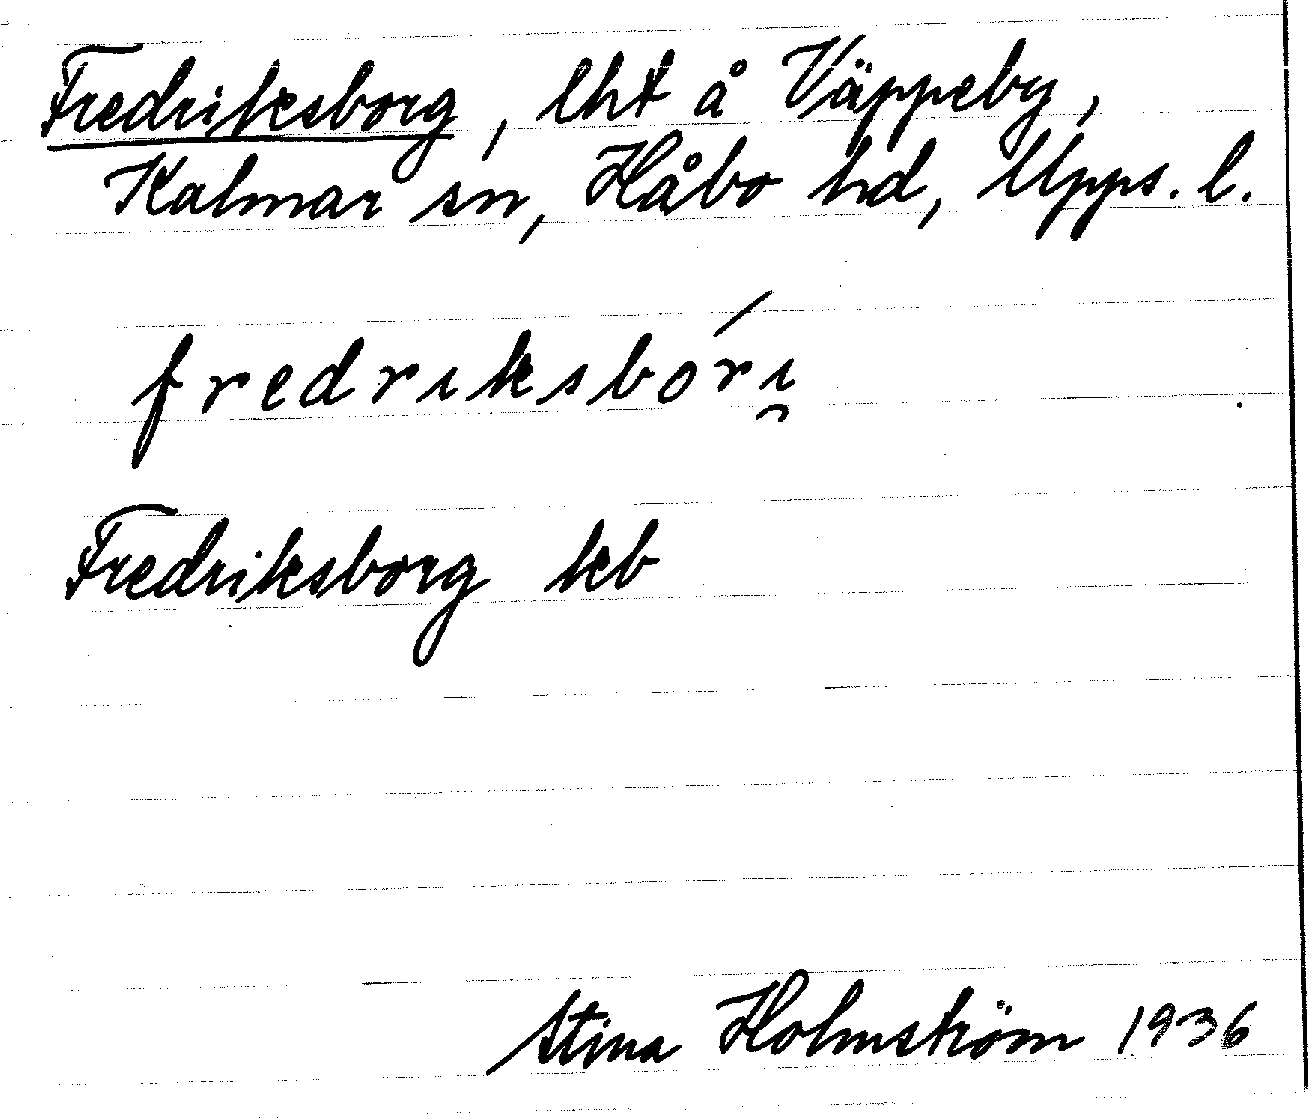 Fredriksborg, lht å Väppeby,
Kalmar sn, Håbo hd, Upps. l.
fredrıksbórı̯
Fredriksborg kb
Stina Holmström 1936